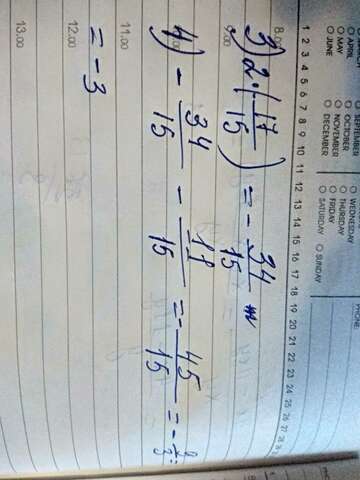 ○ APRIL
○ MAY
○ JUNE
SEPTEMBER
○ OCTOBER
○ NOVEMBER
○ DECEMBER
○ WEDNESDAY
○ THURSDAY
○ FRIDAY
○ SATURDAY
○ SUNDAY
PHONE:
1 2 3 4 5 6 7 8 9 10 11 12 13 14 15 16 17 18 19 20 21 22 23 24 25 26 27 28
8.00
3) 2·(-17/15) = -34/15
9.00
4) -34/15 - 11/15 = -45/15 = -9/3 =
11.00
= -3
12.00
13.00